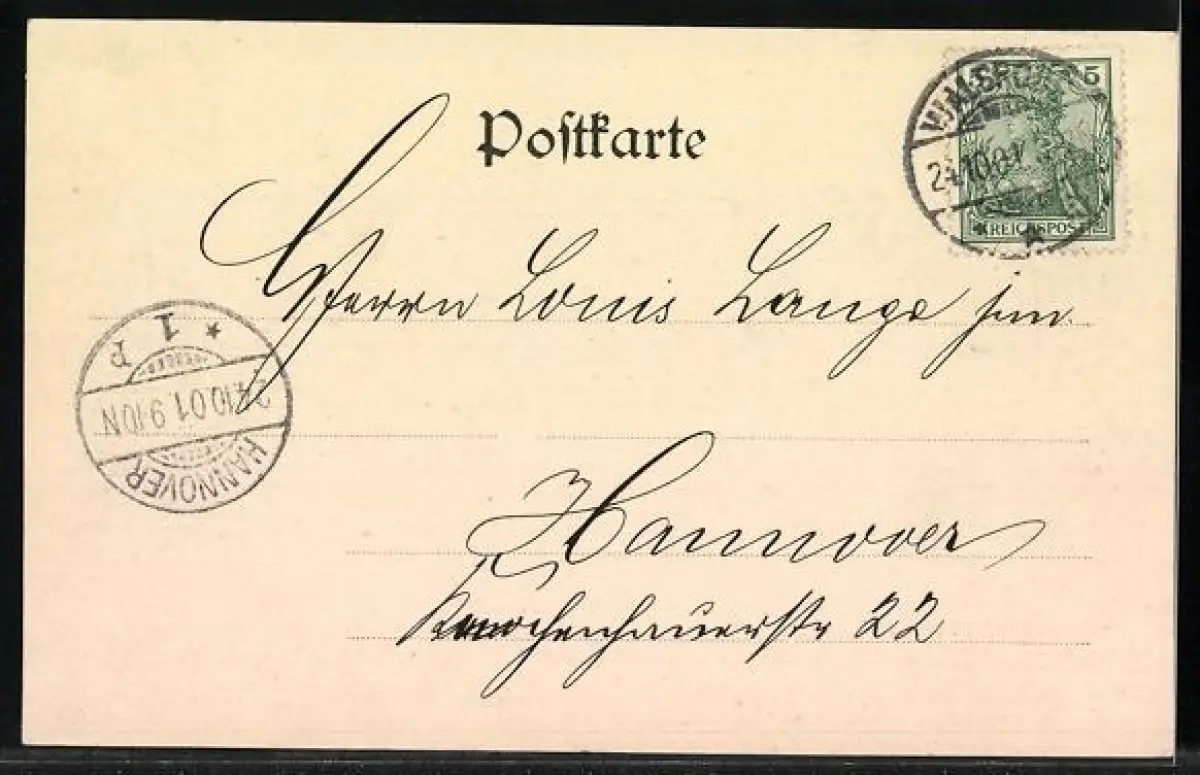 Postkarte
WALSRODE
24.10.01
5
REICHSPOST
Herrn Louis Lange jun.
1 P
24.10.01.9-10N
HANNOVER
Hannover
Knochenhauerstr 22